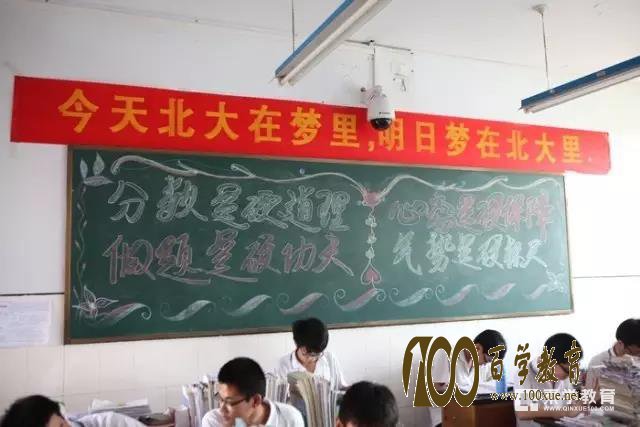 今天北大在梦里,明日梦在北大里.
分数是硬道理
做题是硬功夫
心态是硬保障
气势是硬指天
100百学教育
www.100xue.net
教育
WWW.QINXUE100.COM